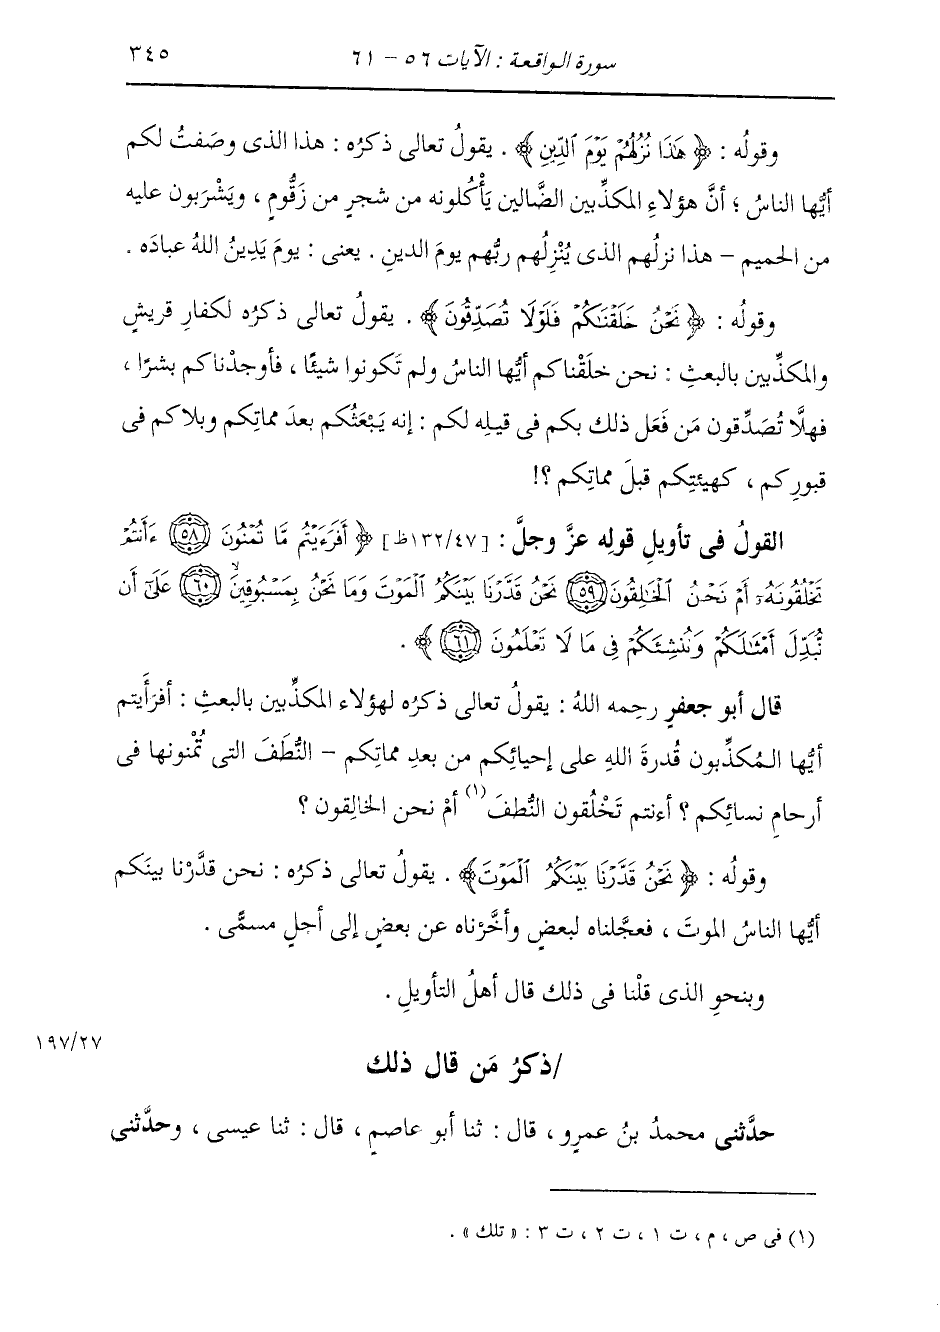 سورة الواقعة : الآيات ٥٦ - ٦١ ٣٤٥
وقولُه : ﴿ هَٰذَا نُزُلُهُمْ يَوْمَ ٱلدِّينِ ﴾ . يقولُ تعالى ذكرُه : هذا الذى وصَفتُ لكم
أيُّها الناسُ ؛ أنَّ هؤلاءِ المكذِّبين الضَّالين يَأْكُلونه من شجرٍ من زَقُّومٍ ، ويَشْرَبون عليه
من الحميمِ - هذا نزلُهم الذى يُنْزِلُهم ربُّهم يومَ الدينِ . يعنى : يومَ يَدِينُ اللهُ عبادَه .
وقولُه : ﴿ نَحْنُ خَلَقْنَٰكُمْ فَلَوْلَا تُصَدِّقُونَ ﴾ . يقولُ تعالى ذكرُه لكفارِ قريشٍ
والمكذِّبين بالبعثِ : نحن خلَقْناكم أيُّها الناسُ ولم تَكونوا شيئًا ، فأوجدْناكم بشرًا ،
فهلَّا تُصَدِّقون مَن فَعَل ذلك بكم فى قيلِه لكم : إنه يَبْعَثُكم بعدَ مماتِكم وبلاكم فى
قبورِكم ، كهيئتِكم قبلَ مماتِكم ؟!
القولُ فى تأويلِ قولِه عزَّ وجلَّ : [١٣٢/٤٧ظ] ﴿ أَفَرَءَيْتُم مَّا تُمْنُونَ ٥٨ ءَأَنتُمْ
تَخْلُقُونَهُۥٓ أَمْ نَحْنُ ٱلْخَٰلِقُونَ ٥٩ نَحْنُ قَدَّرْنَا بَيْنَكُمُ ٱلْمَوْتَ وَمَا نَحْنُ بِمَسْبُوقِينَ ٦٠ عَلَىٰٓ أَن
نُّبَدِّلَ أَمْثَٰلَكُمْ وَنُنشِئَكُمْ فِى مَا لَا تَعْلَمُونَ ٦١ ﴾ .
قال أبو جعفرٍ رحِمه اللهُ : يقولُ تعالى ذكرُه لهؤلاء المكذِّبين بالبعثِ : أفرأَيتم
أيُّها المُكذِّبون قُدرةَ اللهِ على إحيائِكم من بعدِ مماتِكم - النُّطَفَ التى تُمْنونها فى
أرحامِ نسائِكم ؟ أءنتم تَخْلُقون النُّطفَ (١) أمْ نحن الخالِقون ؟
وقولُه : ﴿ نَحْنُ قَدَّرْنَا بَيْنَكُمُ ٱلْمَوْتَ ﴾ . يقولُ تعالى ذكرُه : نحن قدَّرْنا بينَكم
أيُّها الناسُ الموتَ ، فعجَّلناه لبعضٍ وأخَّرْناه عن بعضٍ إلى أجلٍ مسمًّى .
وبنحوِ الذى قلْنا فى ذلك قال أهلُ التأويلِ .
١٩٧/٢٧
/ذكرُ مَن قال ذلك
حدَّثنى محمدُ بنُ عمرٍو ، قال : ثنا أبو عاصمٍ ، قال : ثنا عيسى ، وحدَّثنى
(١) فى ص ، م ، ت ١ ، ت ٢ ، ت ٣ : « تلك » .